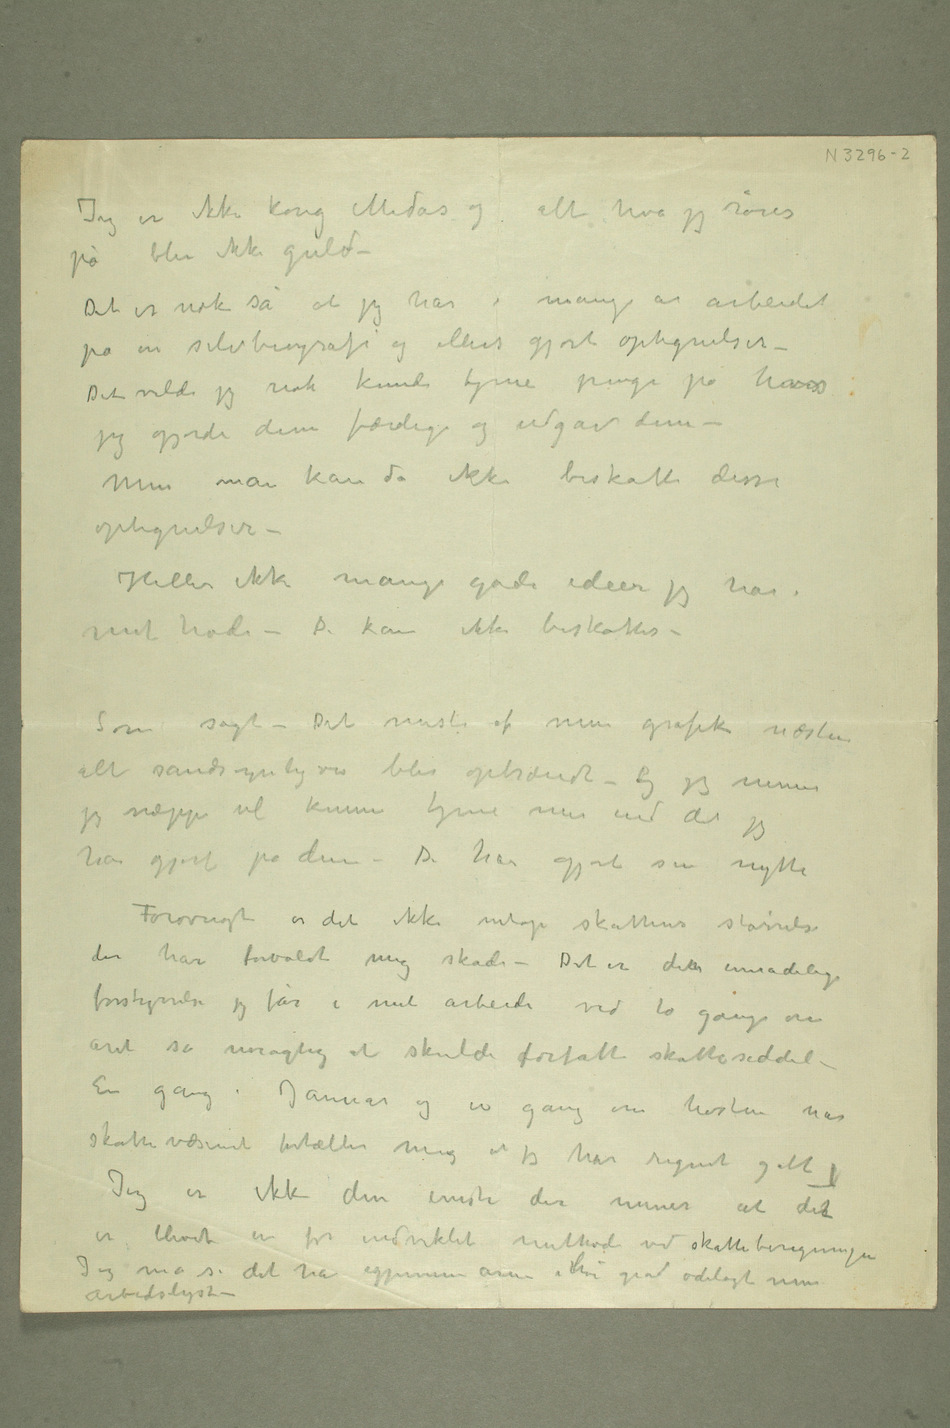 N 3296-2
Jeg er ikke kong Midas og alt hva jeg røres
på blir ikke guld –
Det er nok så at jeg har i mange år arbeidet
på en selvbiografi og ellers gjort optegnelser –
Det vilde jeg nok kunde tjene penge på hvis
jeg gjorde dem færdige og udgav dem –
Men man kan da ikke beskatte disse
optegnelser –
Heller ikke mange gode ideer jeg har i
mit hode – De kan ikke beskattes –
Som sagt – Det meste af min grafik næsten
alt sandsynligvis blir opbrændt – Og jeg mener
jeg næppe vil kunne tjene mer end det jeg
har gjort på dem – De har gjort sin nytte
Forøvrigt er det ikke netop skattens størrelse
der har forvoldt mig skade – Det er den umådelige
forstyrrelse jeg får i mit arbeide ved to gange om
året så nøiagtig at skulde forfatte skatteseddel –
En gang i Januar og en gang om høsten når
skattevæsenet fortæller mig at jeg har regnet galt !
Jeg er ikke den eneste der mener at det
er blevet en for indviklet methode ved skatteberegningen
Jeg må si det har igjennem årene i høi grad ødelagt min
arbeidslyst –